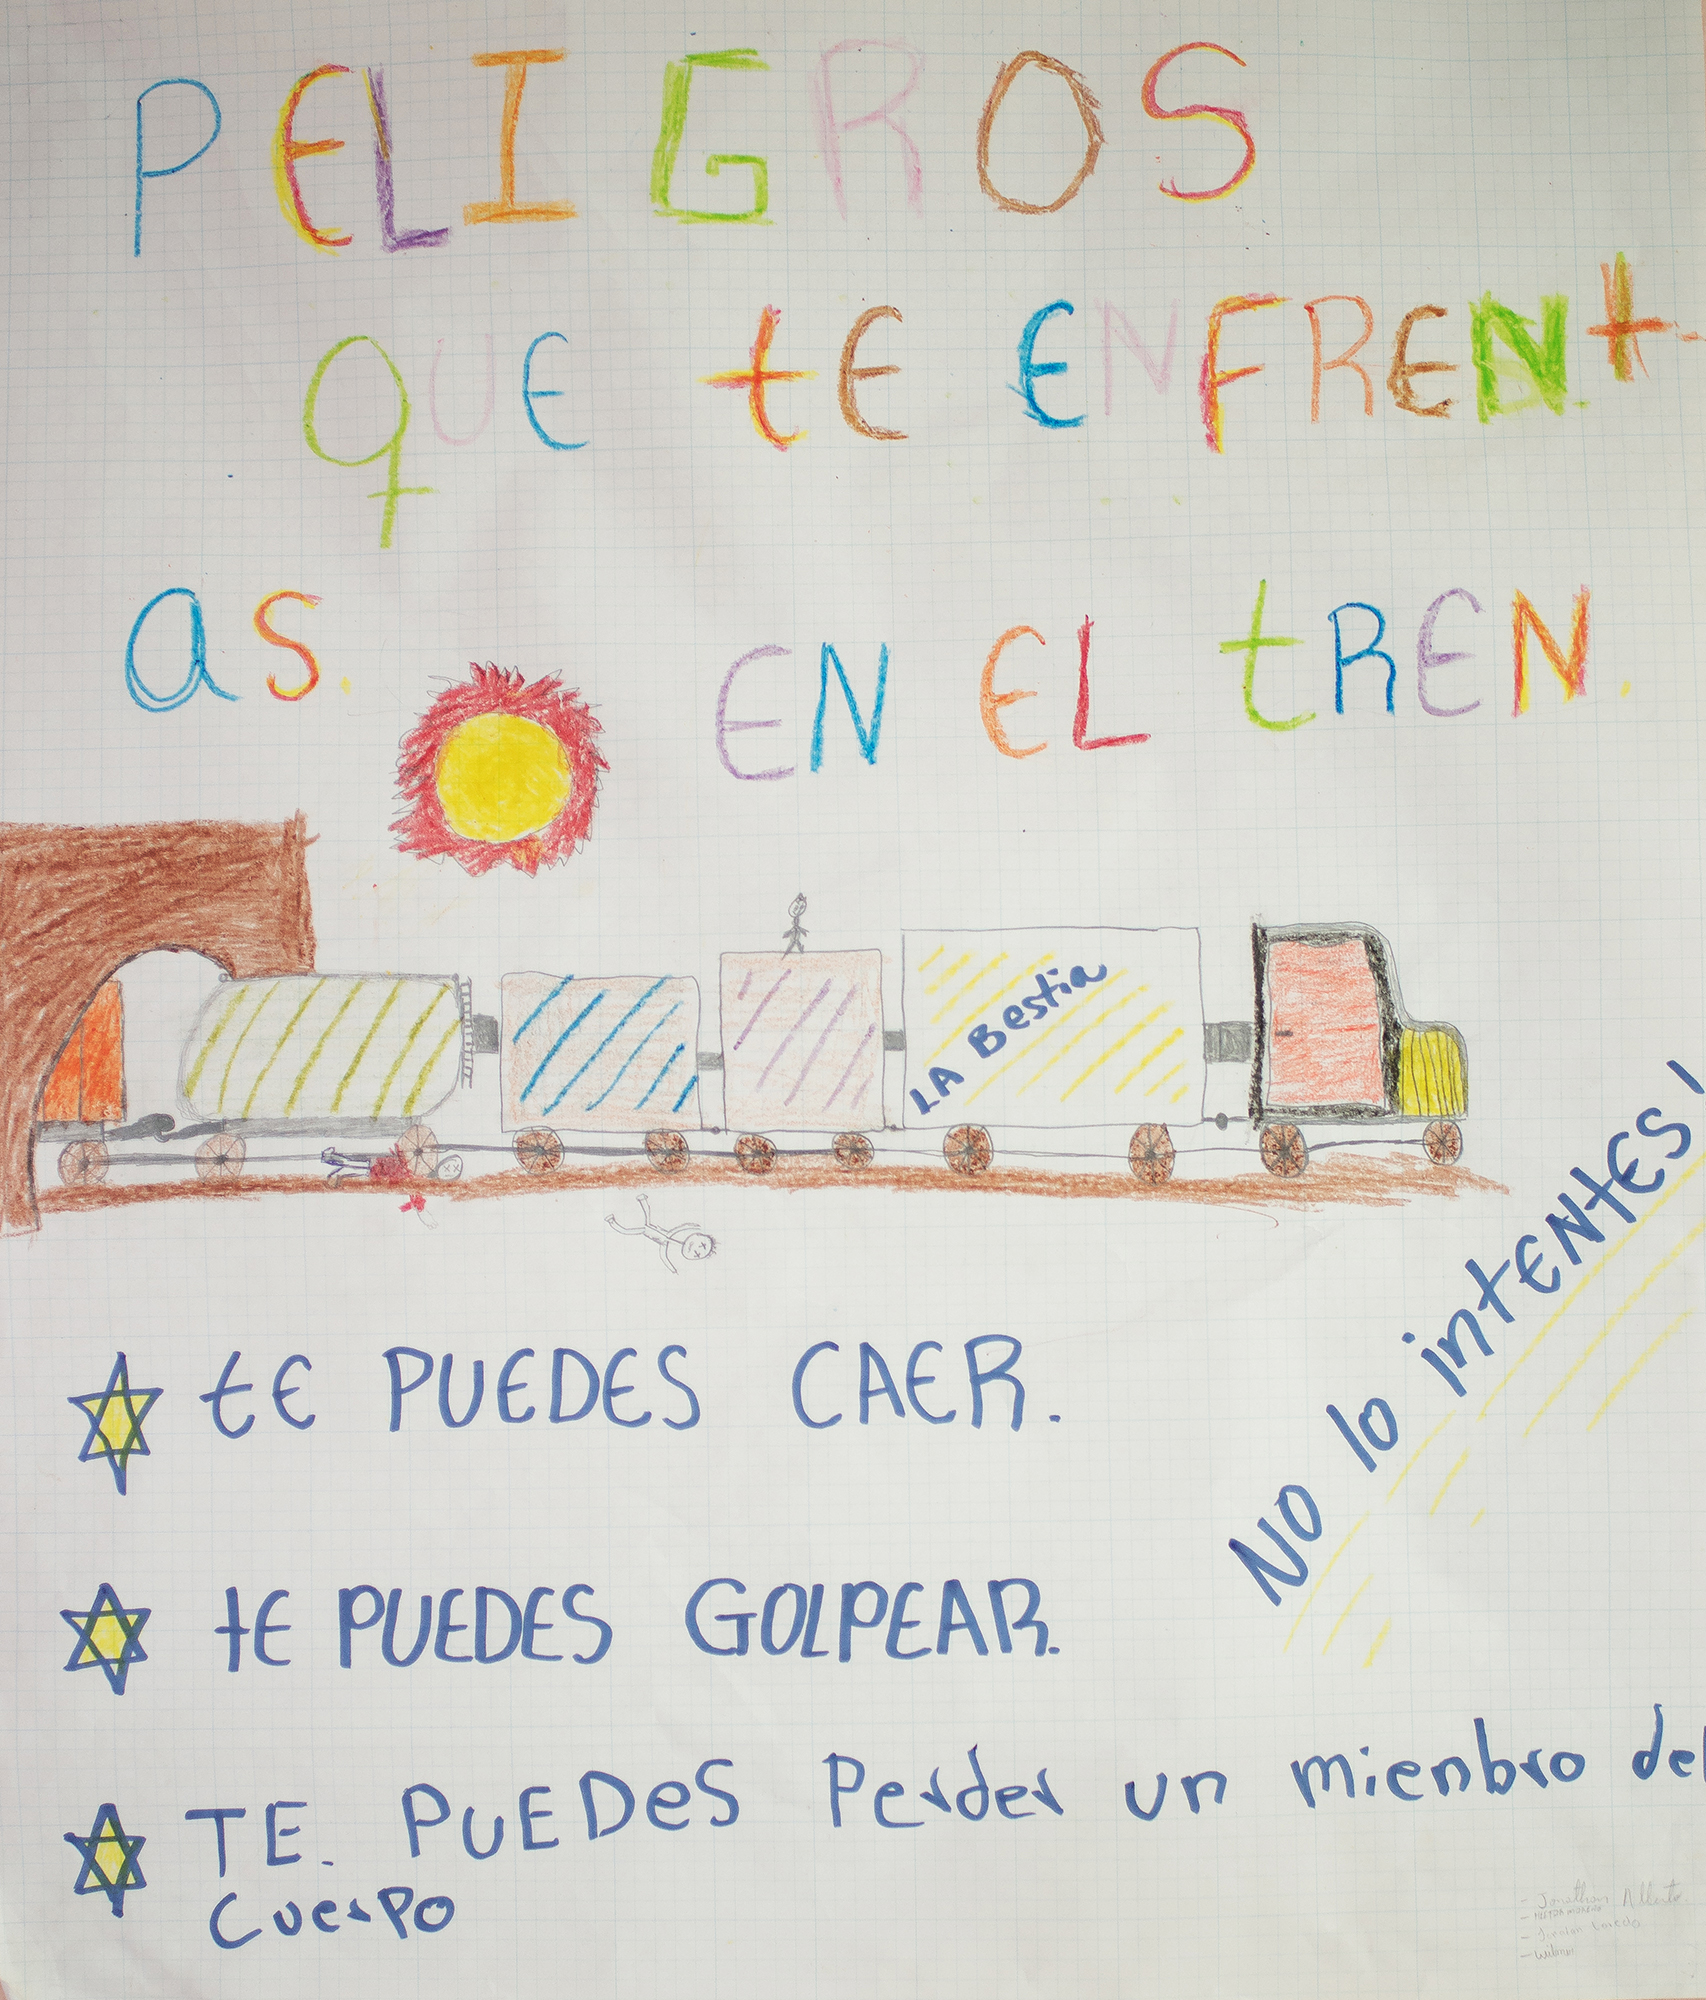 PELIGROS
qUE tE ENFRENt-
as. EN EL tREN.
LA Bestia
No lo intENtES!
tE PUEDES CAER.
tE PUEDES GOLPEAR.
TE. PUEDeS Perder un mienbro del
Cuerpo
- Jonathan Alberto
- HECTOR MORENO